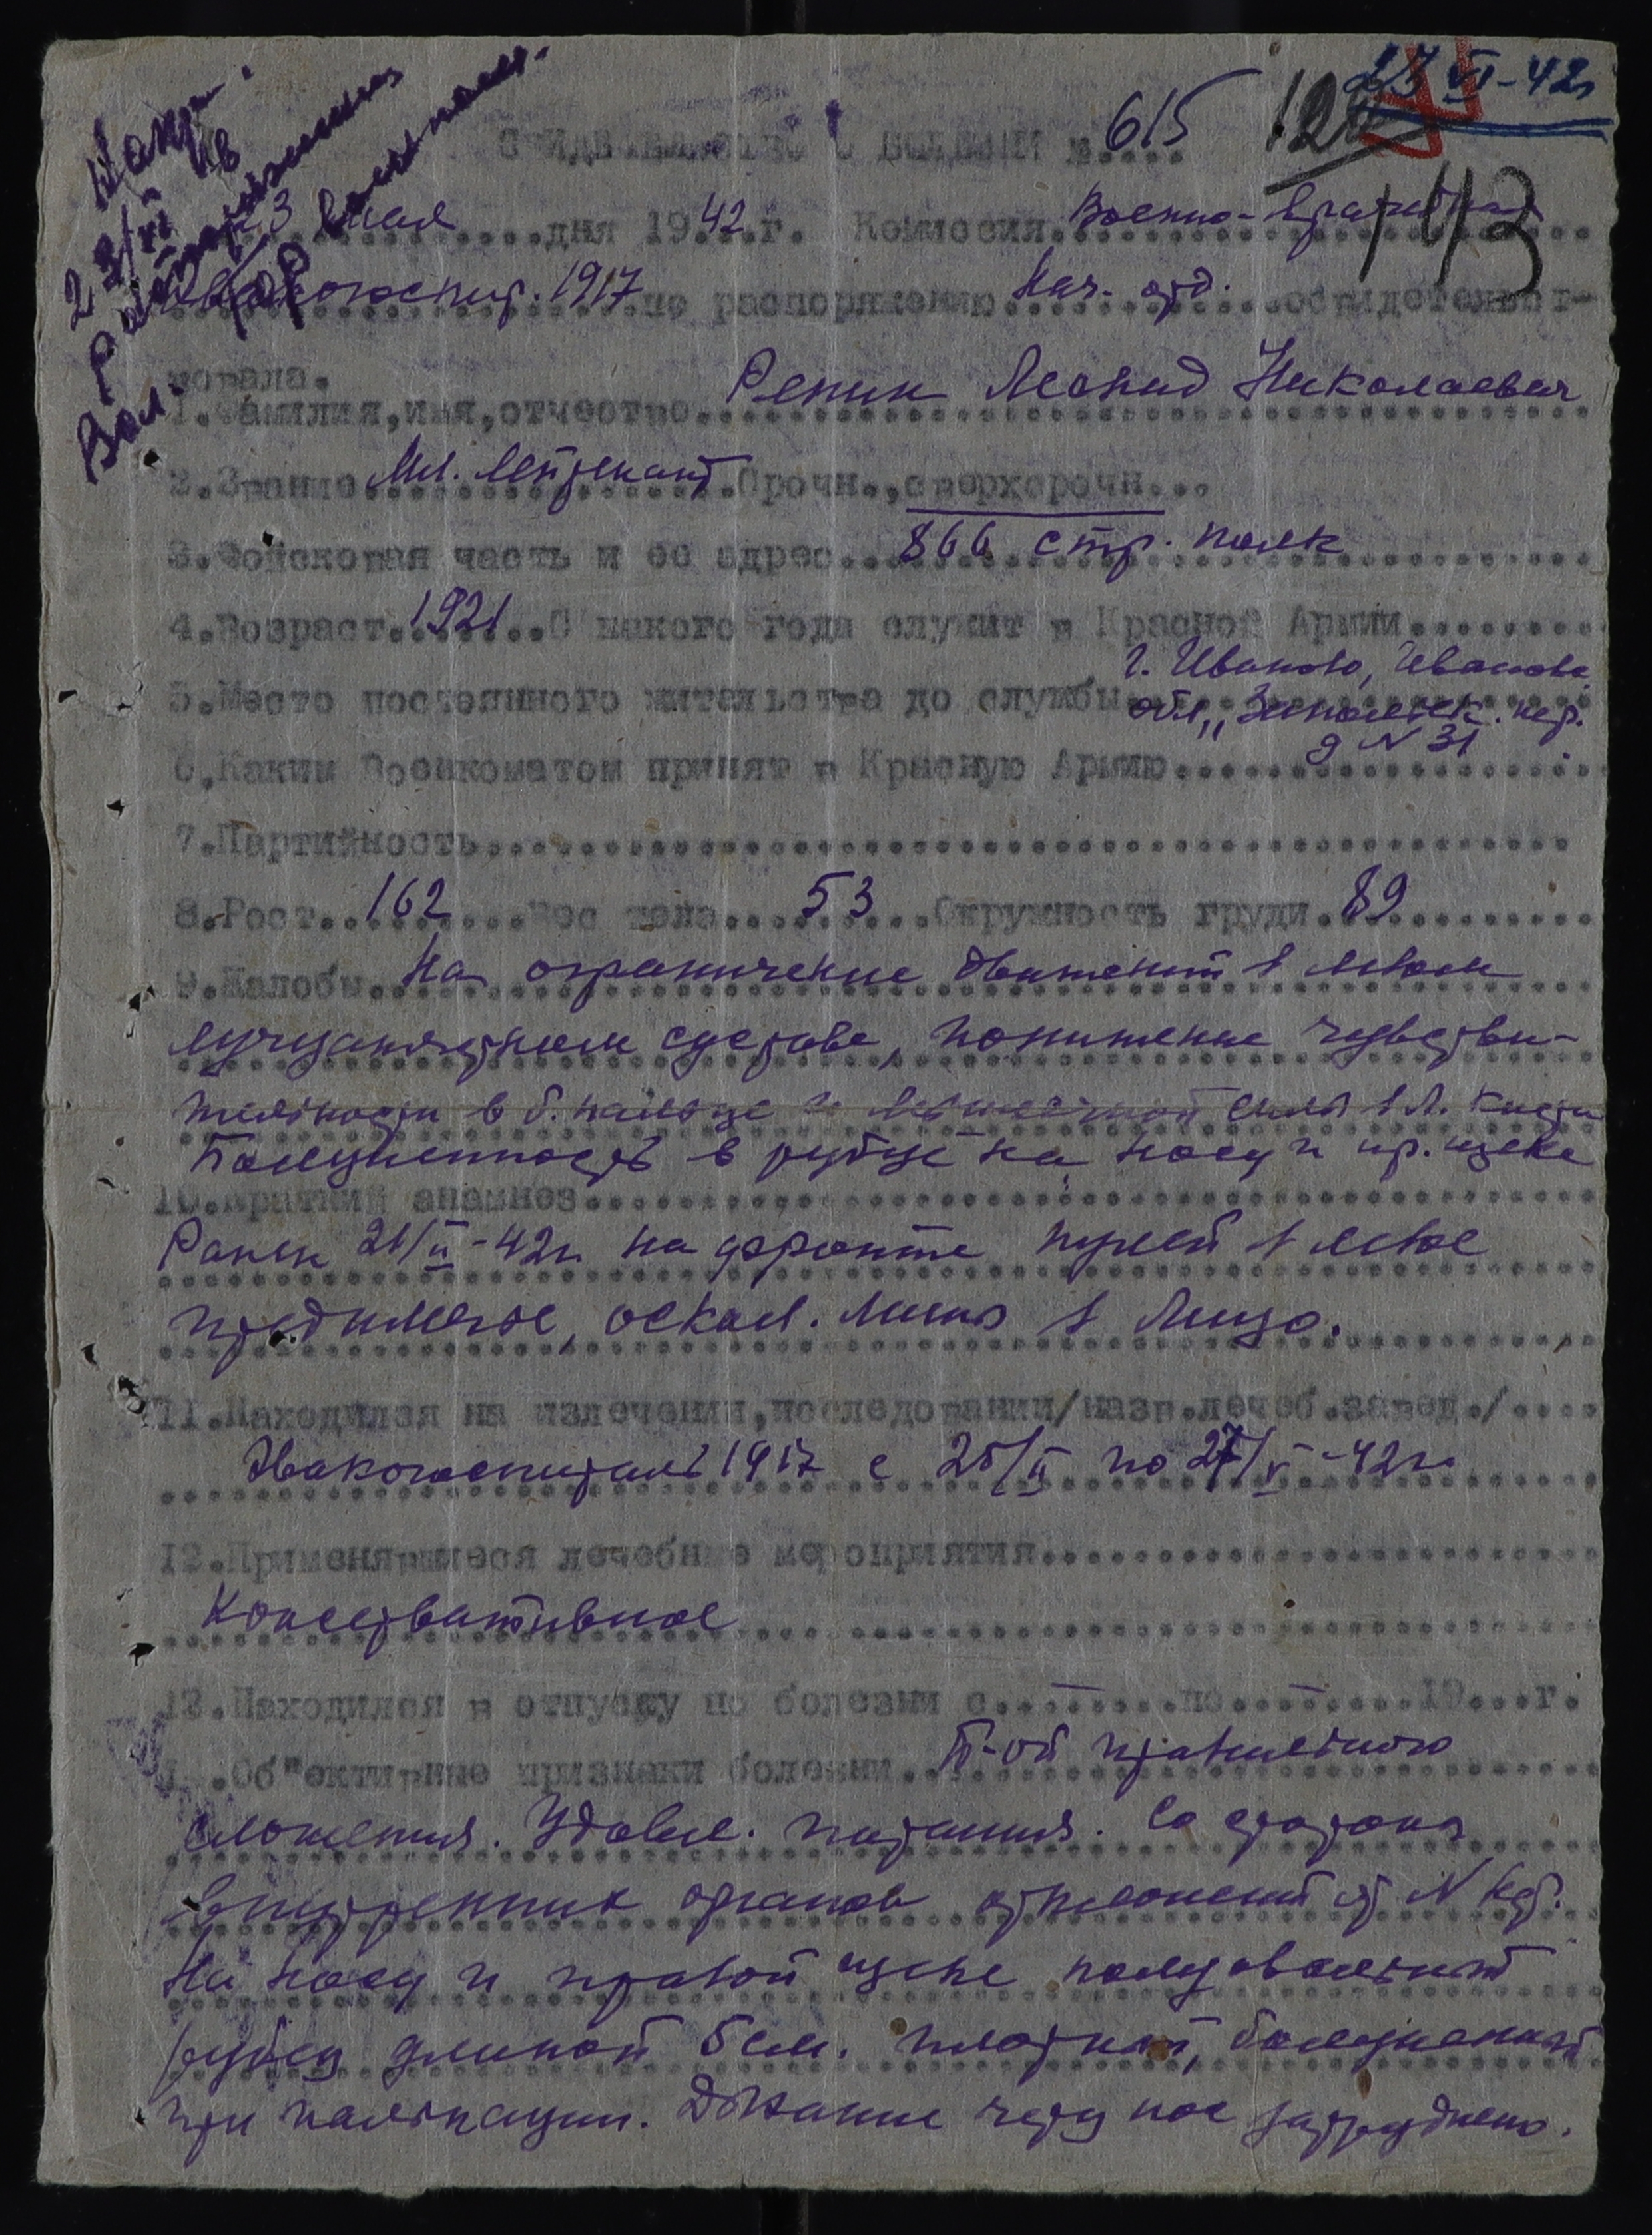 27 VI-42г
615
120
143
СВИДЕТЕЛЬСТВО О БОЛЕЗНИ №....
23 мая дня 1942 г. Комиссия Военно-врачебная
Эвакогоспит. 1917 по распоряжению Нач. освидетельст-
вовала.
1.Фамилия,имя,отчество Репин Леонид Николаевич
2.Звание Мл. лейтенант Срочн.,сверхсрочн...
3.Войсковая часть и ее адрес 866 стр. полк
4.Возраст 1921 С какого года служит в Красной Армии........
г. Иваново, Иванов.
5.Место постоянного жительства до службы обл., пер.
д N 31
6.Каким Военкоматом принят в Красную Армию
7.Партийность
8.Рост 162 Вес тела 53 Окружность груди 89
9.Жалобы На ограничение движений в левом
лучезапястном суставе, понижение чувстви-
тельности в б. пальце и силы в л. кисти
Болезненность в рубце на носу и пр. щеке
10.Краткий анамнез
Ранен 21/II-42г. на фронте пулей в левое
предплечье, оскол. мины в лицо.
11.Находился на излечении,исследовании/назв.лечеб.завед./....
Эвакогоспиталь 1917 с 25/II по 27/V-42г.
12.Применявшиеся лечебные мероприятия
Консервативное
13.Находился в отпуску по болезни с...–....по...–....19...г.
.Об"ективные признаки болезни Б-ой правильного
сложения. Удовл. питания. Со стороны
внутренних органов отклонений от N нет.
На носу и правой щеке полуовальный
рубец длиной 5 см. плотный, болезненный
при пальпации. Дыхание через нос затруднено.